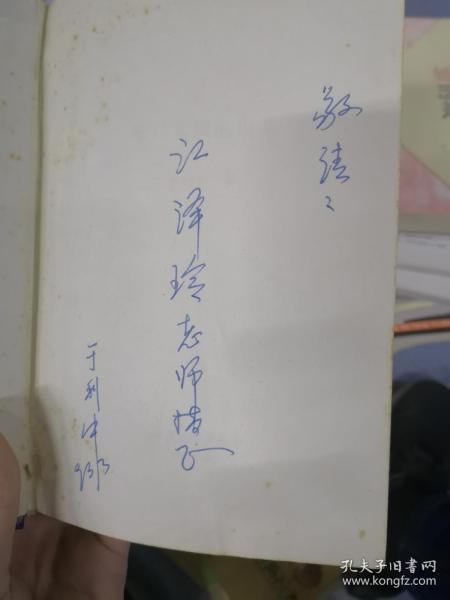 敬请:
江泽玲老师指正
于利中
孔夫子旧书网
www.kongfz.com